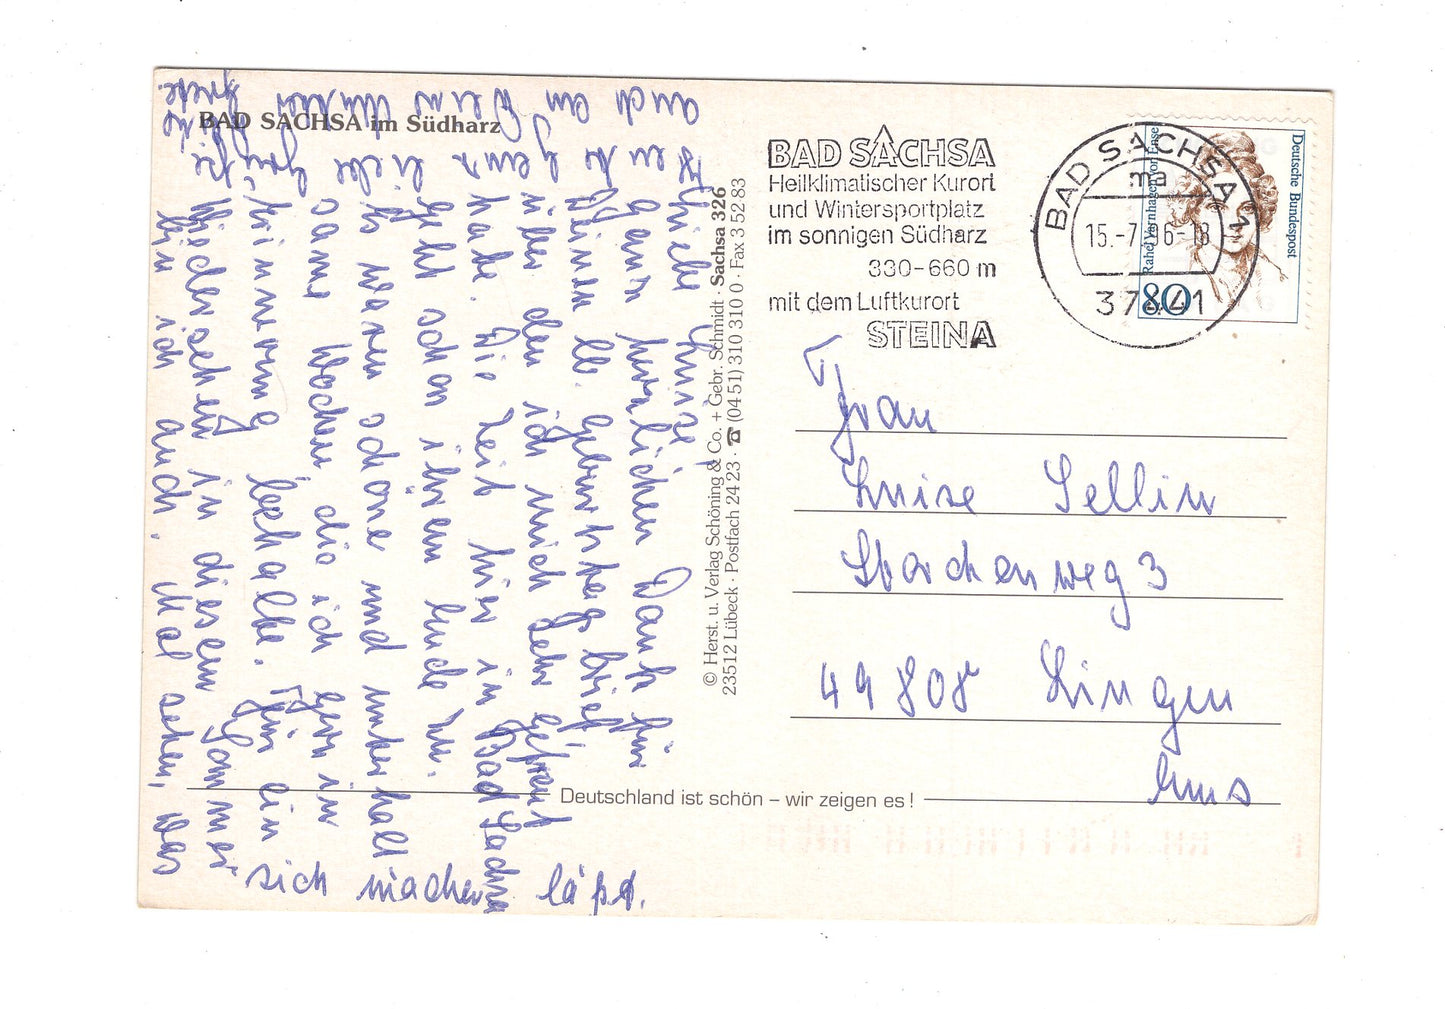 BAD SACHSA im Südharz
BAD SACHSA
Heilklimatischer Kurort
und Wintersportplatz
im sonnigen Südharz
330-660 m
mit dem Luftkurort
STEINA
BAD SACHSA 1
ma
15.-7. 96-18
37441
Deutsche Bundespost
Rahel Varnhagen von Ense
80
Frau
Luise Sellin
Storchenweg 3
49808 Lingen
Ems
© Herst. u. Verlag Schöning & Co. + Gebr. Schmidt · Sachsa 326
23512 Lübeck · Postfach 24 23 · ☎ (04 51) 310 310 0 · Fax 3 52 83
Deutschland ist schön – wir zeigen es!
Luise!
ganz herzlichen Dank für
Deinen lb. Geburtstagsbrief
über den ich mich sehr gefreut
habe. Die Zeit hier in Bad Sachsa
geht schon ihrem Ende zu.
Es waren schöne und
Wochen, die ich gern in
Erinnerung behalte. Für ein
Wiedersehen in diesem Sommer
bin ich auch. Mal sehen, was
sich machen läßt.
liebe Grüße
auch an